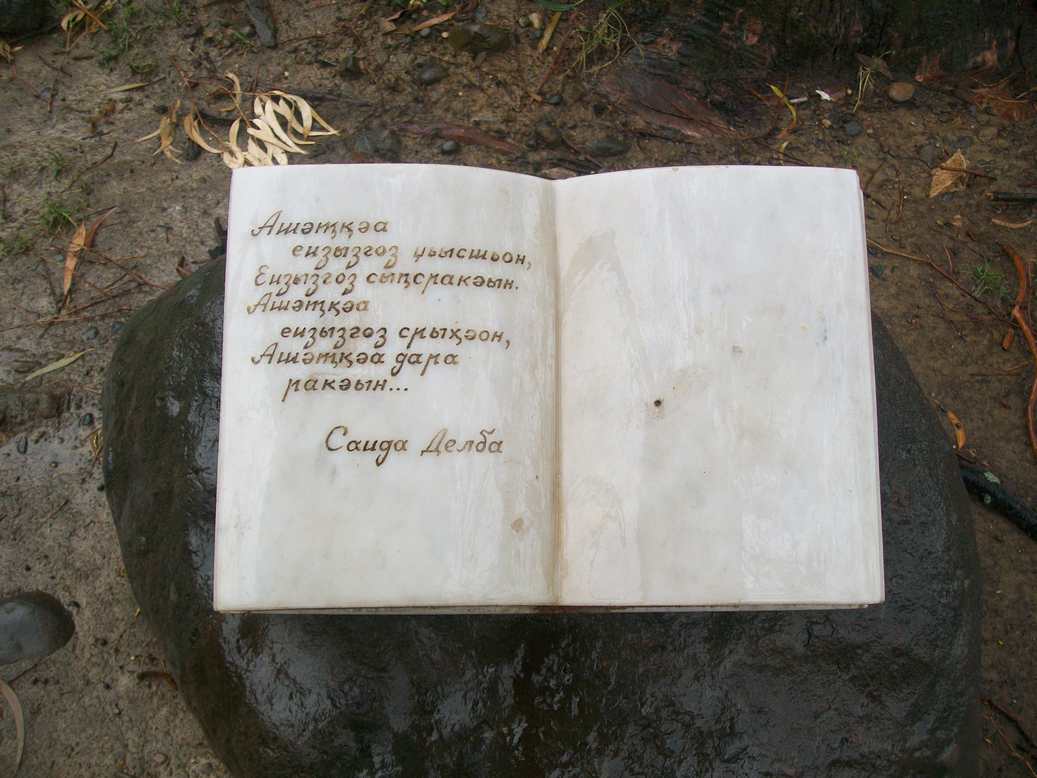 Ашәҭқәа
еизызгоз џьысшьон,
Еизызгоз сыԥсракәын.
Ашәҭқәа
еизызгоз срыҳәон,
Ашәҭқәа дара
ракәын...
Саида Делба